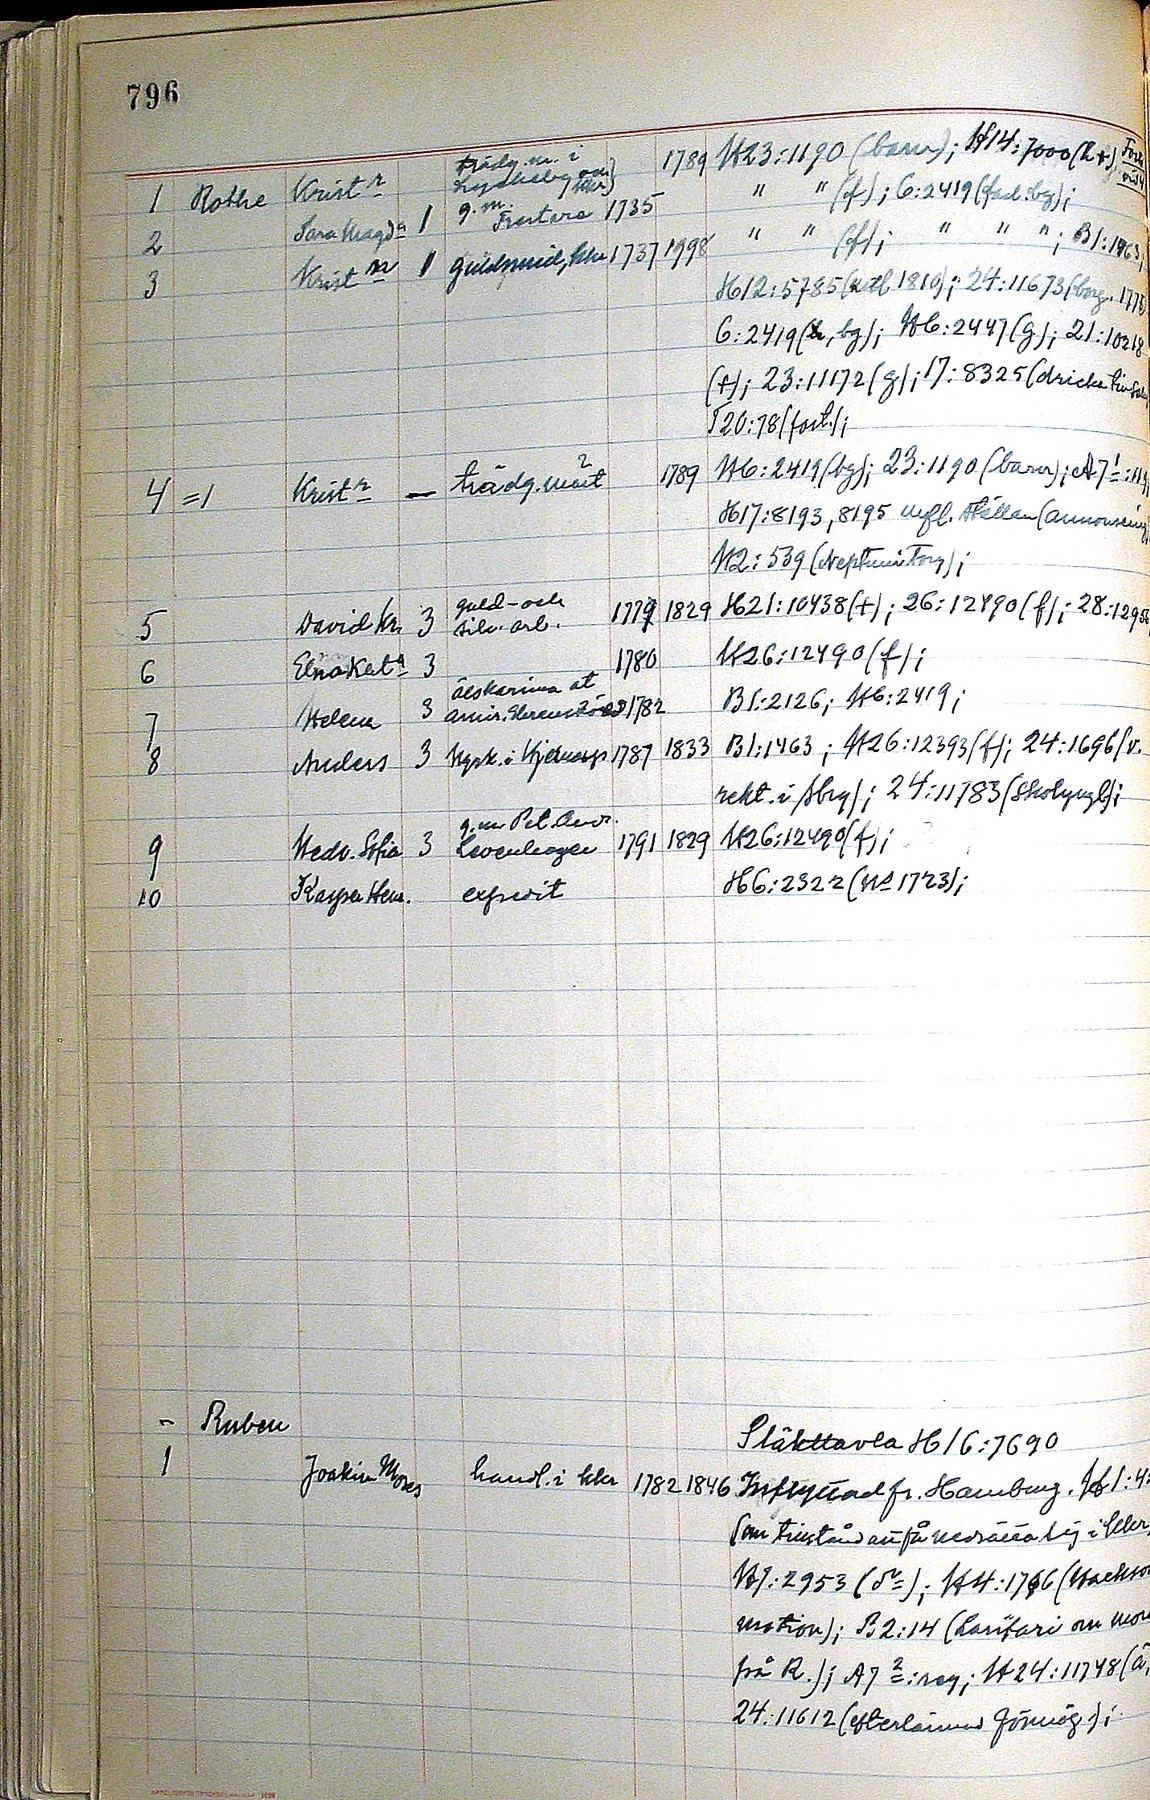 796
1 Rothe Krist r trädg.m. i Lyckeby om Kkr) 1789 H23:1190 (barn); H14:7000 (h+)
2 Sara Magd a 1 g.m. 1735 " " (f); 6:2419 (fad. bg);
3 Krist n 1 guldsmed, Kkr 1737 1998 " " (f); " " "; B1:1463;
H12:5785 ( 1810); 24:11673 (borg. 177
6:2419 (h, bg); H6:2447 (g); 21:10218
(+); 23:11172 (g); 17:8325 (dricka
T20:78 (fast.);
4 =1 Krist r — trädg.mäst 2 1789 H6:2419 (bg); 23:1190 (barn); A7 1:119
H17:8193, 8195 mfl. ställen (annonsering
H2:539 (Neptuni Torg);
5 David Kr. 3 guld- och silv. arb. 1779 1829 H21:10438 (+); 26:12490 (f); 28:1295
6 Elna Kat a 3 1780 H26:12490 (f);
7 Helena 3 älskarinna at amir. 1782 B1:2126; H6:2419;
8 Anders 3 kyrk. i 1787 1833 B1:1463; H26:12393 (f); 24:1696 (v.
rekt. i Sbrg); 24:11783 (skolyngl);
9 Hedv. Sofia 3 g.m Pet. Levenhagen 1791 1829 H26:12490 (f);
10 Kasper Hen. expedit H6:2322 (No 1723);
- Ruben Släkttavla H16:7690
1 Joakim Moses handl. i Kkr 1782 1846 Inflyttad fr. Hamburg. H1:4
(om tillstånd att få nedsätta sig i Kkr,
H7:2953 (d o); H4:1766
motion); B2:14 (Larifari om mor
på R.); A7 2:reg; H24:11748 (
24:11612 (efterlämnad förmög);